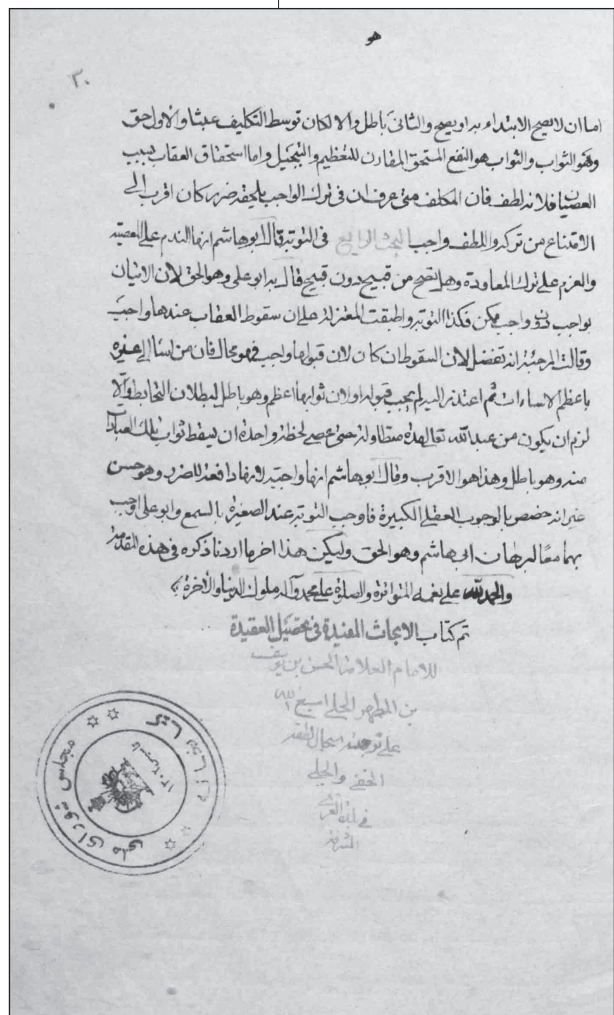 هو
٣٠
اما ان لا يصح الابتداء به او يصح والثانى باطل والا لكان توسط التكليف عبثا والاول حق
وهو الثواب والثواب هو النفع المستحق المقارن للتعظيم والتبجيل واما استحقاق العقاب بسبب
العصيان فلانه لطف فان المكلف متى عرف ان فى ترك الواجب يلحقه ضرر كان اقرب الى
الامتناع من تركه واللطف واجب البحث الرابع فى التوبة قال ابوهاشم انها الندم على المعصية
والعزم على ترك المعاودة وهل تصح من قبيح دون قبيح قال به ابو على وهو الحق لان الاتيان
بواجب دون واجب ممكن فكذا التوبة واطبقت المعتزلة على ان سقوط العقاب عندها واجب
وقالت المرجئة انه تفضل لان السقوط ان كان لان قبولها واجب فهو محال فان من اساء الى غيره
باعظم الاساءات ثم اعتذر اليه لم يجب قبوله او لان ثوابها اعظم وهو باطل لبطلان التحابط والا
لزم ان يكون من عبد الله تعالى مدة متطاولة حتى عصى لحظة واحدة ان يسقط ثواب تلك العبادات
منه وهو باطل وهذا هو الاقرب وقال ابوهاشم انها واجبة لانها دافعة للضرر وهو حسن
غير انه خصص بالوجوب العقلى الكبيرة فاوجب التوبة عند الصغيرة بالسمع وابو على اوجب
بهما معا لبرهان ابى هاشم وهو الحق وليكن هذا اخر ما اردنا ذكره فى هذه المقدمة
والحمد لله على نعمه المتواترة والصلوة على محمد وآله ملوك الدنيا والآخرة
تم كتاب الابحاث المفيدة فى تحصيل العقيدة
للامام العلامة الحسن بن يوسف
بن المطهر الحلى اسبغ الله
على تربته سجال لطفه
الخفى والجلى
فى
مجلس شوراى ملى